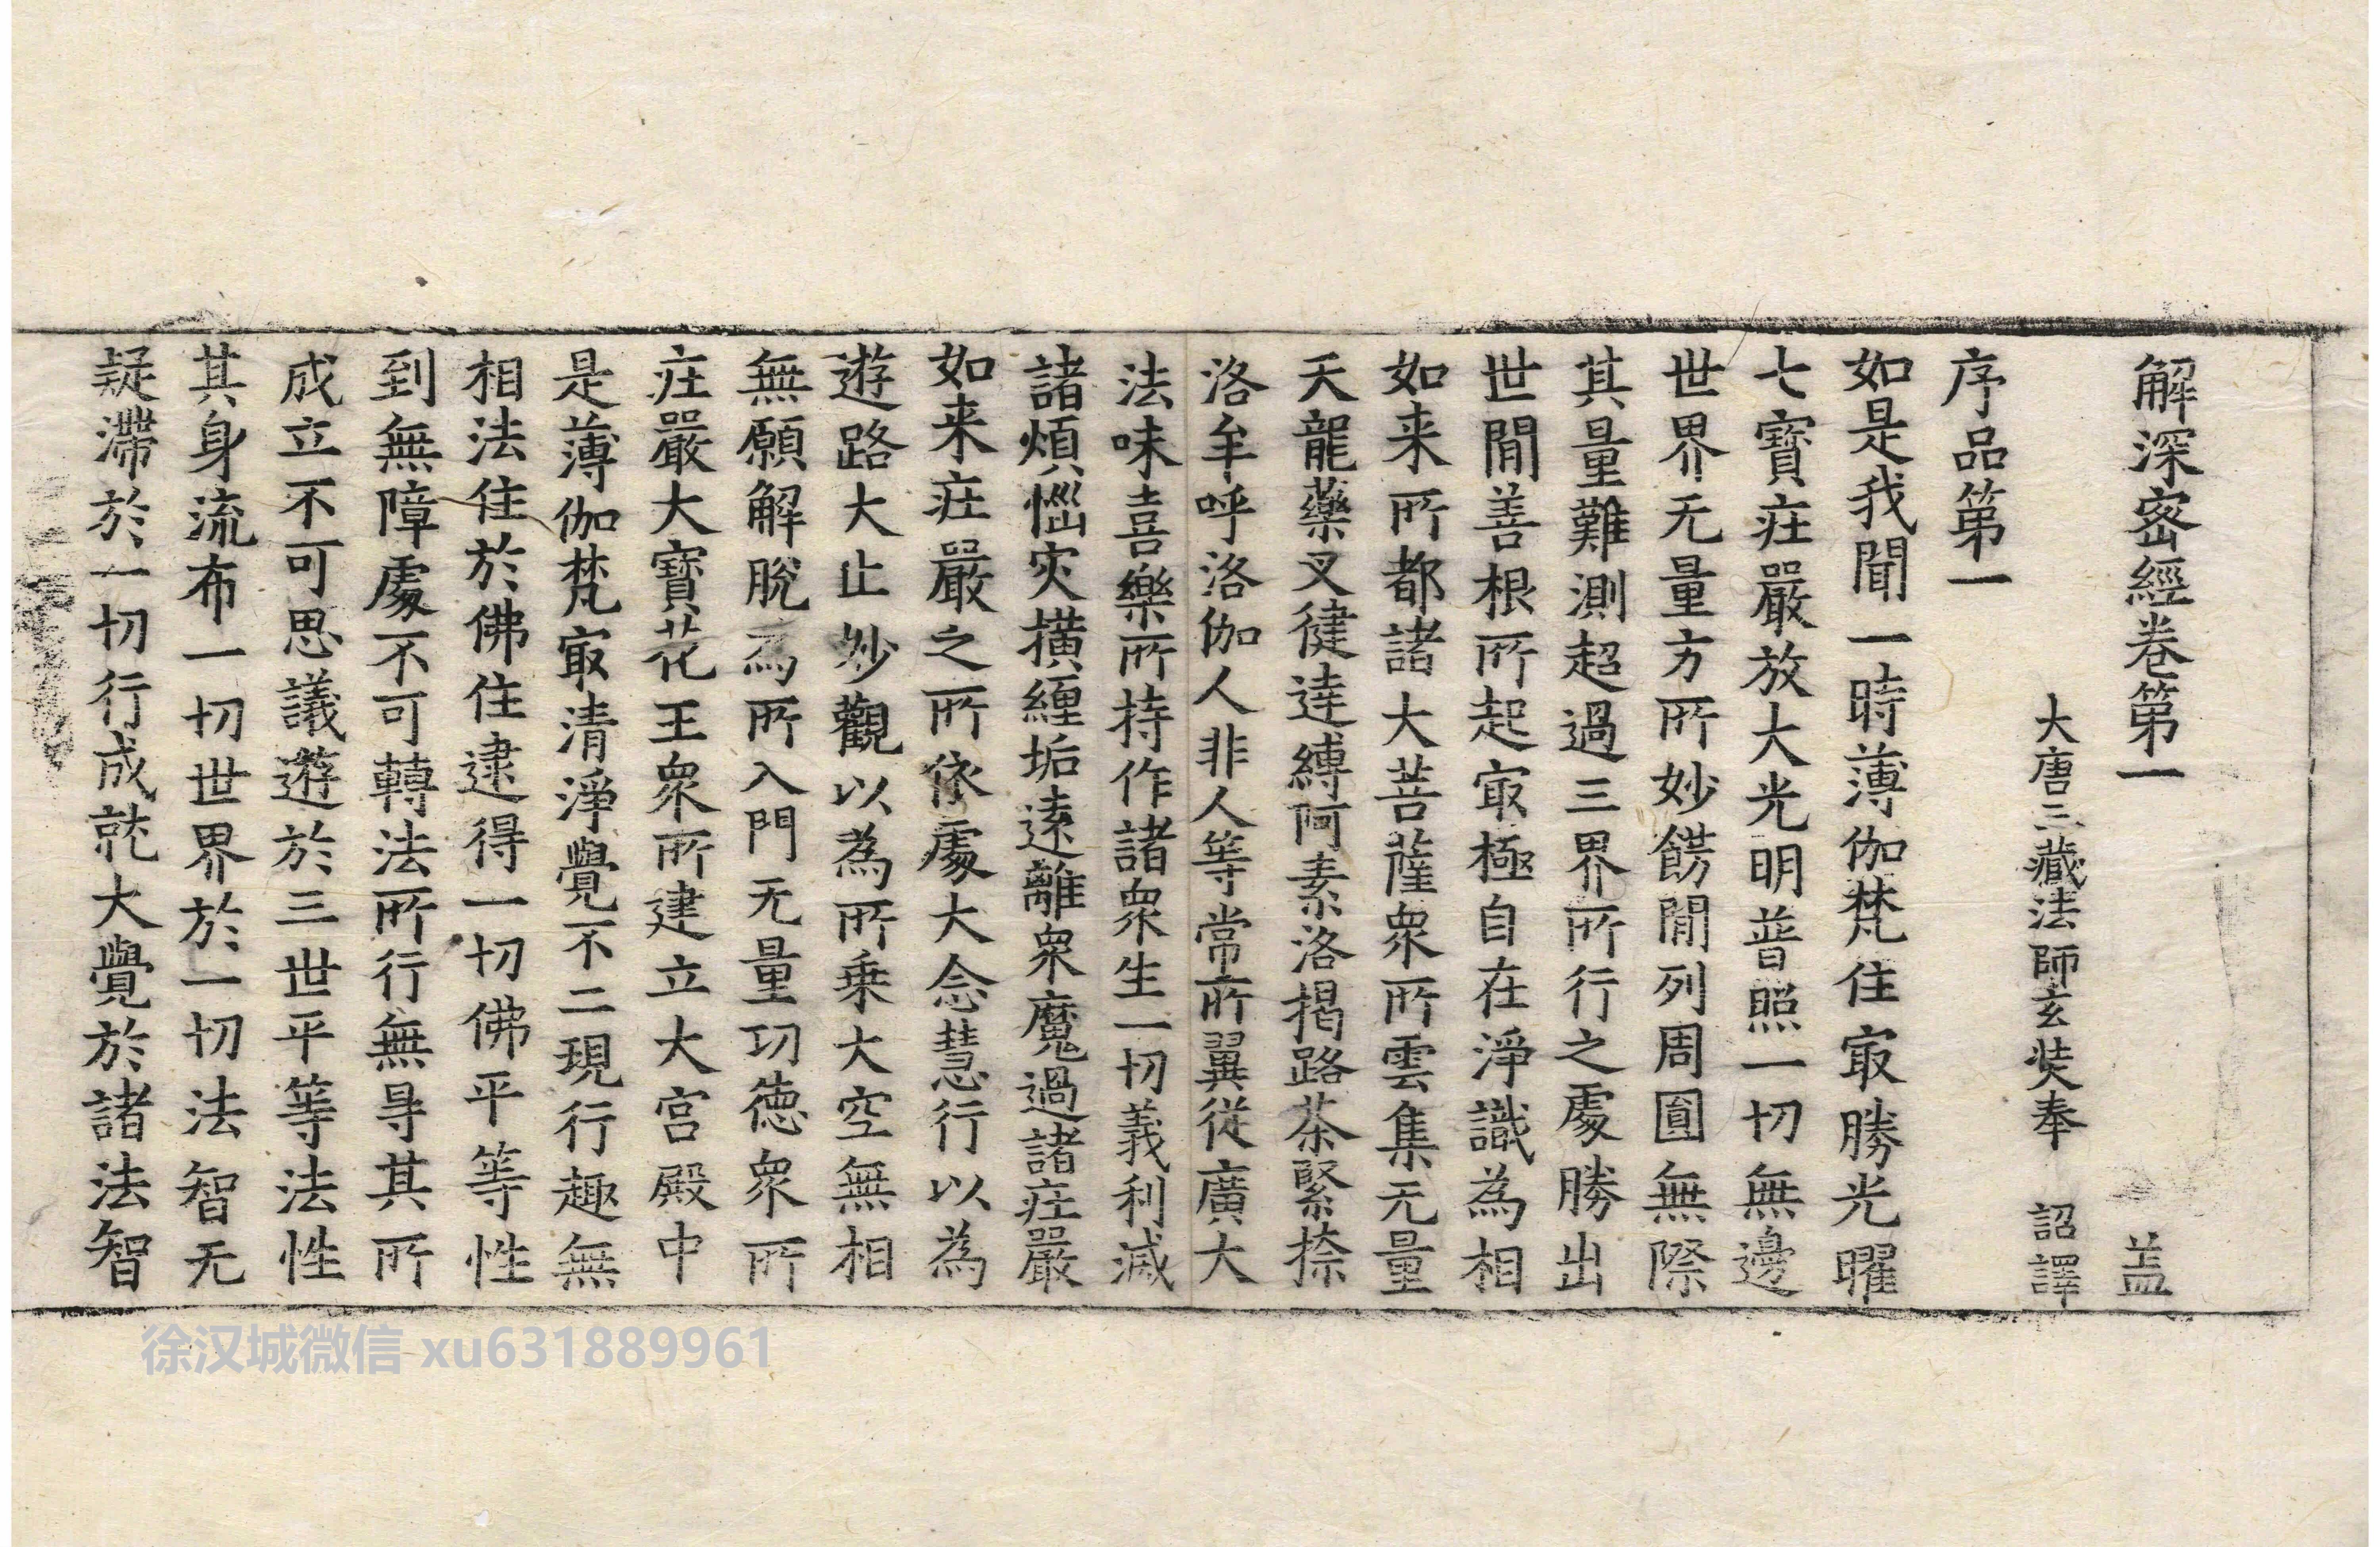 解深密經卷第一 盖
大唐三藏法師玄奘奉 詔譯
序品第一
如是我聞一時薄伽梵住㝡勝光曜
七寶庄嚴放大光明普照一切無邊
世界无量方所妙餝閒列周圓無際
其量難測超過三界所行之處勝出
世閒善根所起㝡極自在淨識為相
如来所都諸大菩薩衆所雲集无量
天龍藥叉健達縛阿素洛揭路荼緊捺
洛牟呼洛伽人非人等常所翼從廣大
法味喜樂所持作諸衆生一切義利滅
諸煩惱灾撗纏垢遠離衆魔過諸庄嚴
如来庄嚴之所依處大念慧行以為
遊路大止妙觀以為所乗大空無相
無願解脫為所入門无量功德衆所
庄嚴大寶花王衆所建立大宮殿中
是薄伽梵㝡清淨覺不二現行趣無
相法住於佛住逮得一切佛平等性
到無障處不可轉法所行無㝵其所
成立不可思議遊於三世平等法性
其身流布一切世界於一切法智无
疑滯於一切行成就大覺於諸法智
徐汉城微信 xu631889961